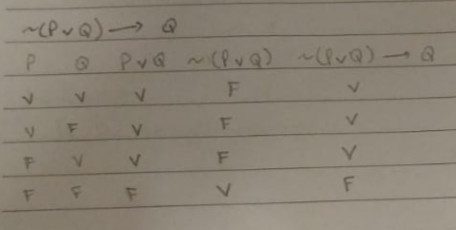 ~(P∨Q) → Q
P Q P∨Q ~(P∨Q) ~(P∨Q) → Q
V V V F V
V F V F V
F V V F V
F F F V F